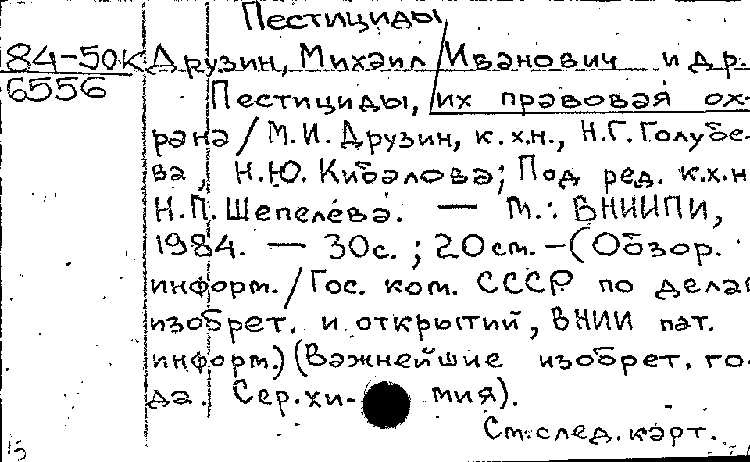 Пестициды,
84-50К Друзин, Михаил Иванович и др.
6556 Пестициды, их правовая ох-
рана / М.И. Друзин, к.х.н., Н.Г. Голубе-
ва, Н.Ю. Кибалова; Под ред. к.х.н
Н.П. Шепелева. — М.: ВНИИПИ,
1984. — 30с.; 20см. -(Обзор.
информ./Гос. ком. СССР по делам
изобрет. и открытий, ВНИИ пат.
информ.) (Важнейшие изобрет. го-
да. Сер. хи- мия).
См. след. карт.
15